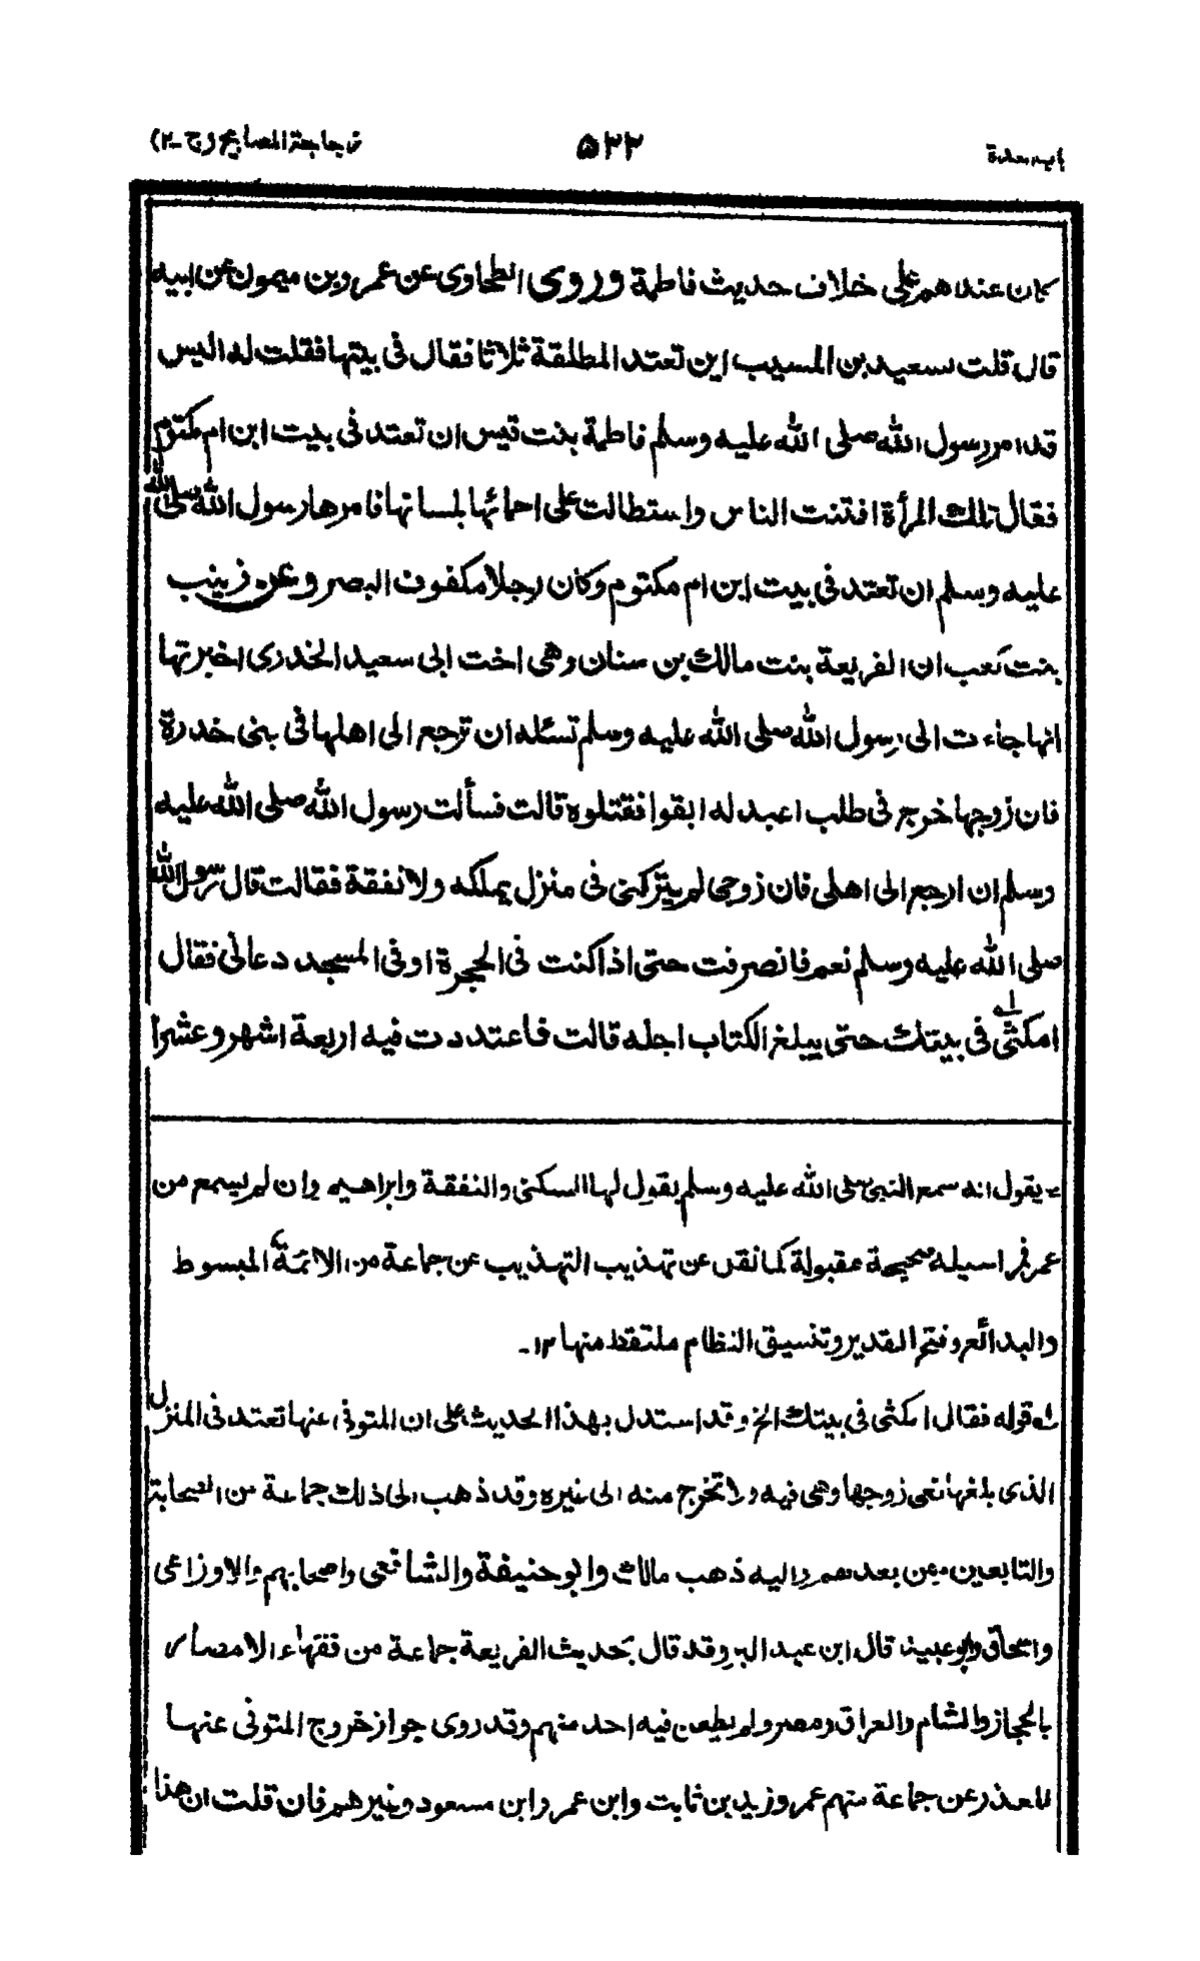 زجاجة المصابيح (ج-٢)
۵۲۲
باب العدة
كان عندهم على خلاف حديث فاطمة وروى الطحاوى عن عمرو بن ميمون عن ابيه
قال قلت لسعيد بن المسيب اين تعتد المطلقة ثلاثا فقال فى بيتها فقلت له اليس
قد امر رسول الله صلى الله عليه وسلم فاطمة بنت قيس ان تعتد فى بيت ابن ام مكتوم
فقال تلك المرأة افتنت الناس واستطالت على احمائها بلسانها فامرها رسول الله صلى الله
عليه وسلم ان تعتد فى بيت ابن ام مكتوم وكان رجلا مكفوف البصر وعن زينب
بنت كعب ان الفريعة بنت مالك بن سنان وهى اخت ابى سعيد الخدرى اخبرتها
انها جاءت الى رسول الله صلى الله عليه وسلم تسئله ان ترجع الى اهلها فى بنى خدرة
فان زوجها خرج فى طلب اعبد له ابقوا فقتلوه قالت فسألت رسول الله صلى الله عليه
وسلم ان ارجع الى اهلى فان زوجى لم يتركنى فى منزل يملكه ولا نفقة فقالت قال رسول الله
صلى الله عليه وسلم نعم فانصرفت حتى اذا كنت فى الحجرة او فى المسجد دعانى فقال
امكثى فى بيتك حتى يبلغ الكتاب اجله قالت فاعتددت فيه اربعة اشهر وعشرا
يقول انه سمع النبى صلى الله عليه وسلم يقول لها السكنى والنفقة وابراهيم وان لم يسمع من
عمر فمراسيله صحيحة مقبولة كما نقل عن تهذيب التهذيب عن جماعة من الائمة المبسوط
والبدائع وفتح القدير وتنسيق النظام ملتقط منها ۱۲-
له قوله فقال امكثى فى بيتك الخ وقد استدل بهذا الحديث على ان المتوفى عنها تعتد فى المنزل
الذى بلغها نعى زوجها وهى فيه ولا تخرج منه الى غيره وقد ذهب الى ذلك جماعة من الصحابة
والتابعين ومن بعدهم واليه ذهب مالك وابو حنيفة والشافعى واصحابهم والاوزاعى
واسحاق وابو عبيد قال ابن عبد البر وقد قال بحديث الفريعة جماعة من فقهاء الامصار
بالحجاز والشام والعراق ومصر ولم يطعن فيه احد منهم وقد روى جواز خروج المتوفى عنها
للعذر عن جماعة منهم عمر وزيد بن ثابت وابن عمر وابن مسعود وغيرهم فان قلت ان هذا